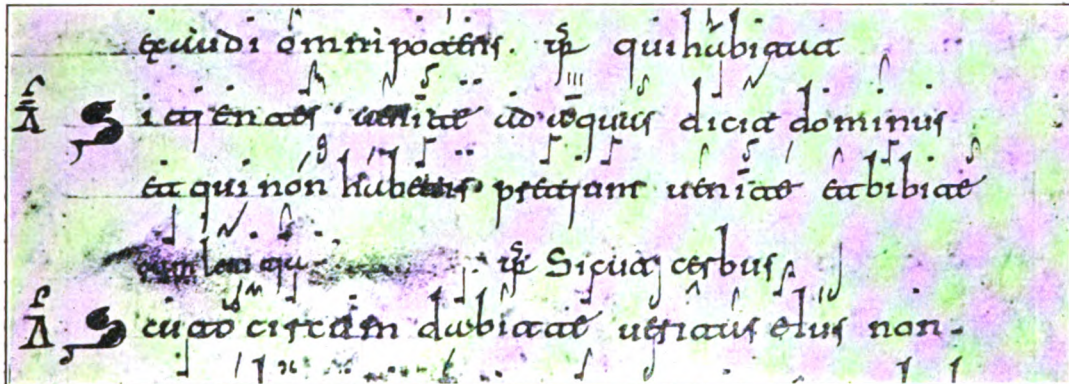 exaudi omnipotens. qui habitat
Sitientes venite ad aquas dicit dominus
et qui non habetis pretium venite et bibite
cum leti
Sicut cerbus
Scuto circumdabit te veritas eius non